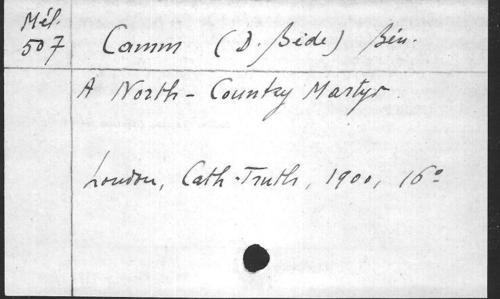 Mél.
507
Camm (D. Bede) Bén.
A North-Country Martyr
London, Cath. Truth, 1900, 16°